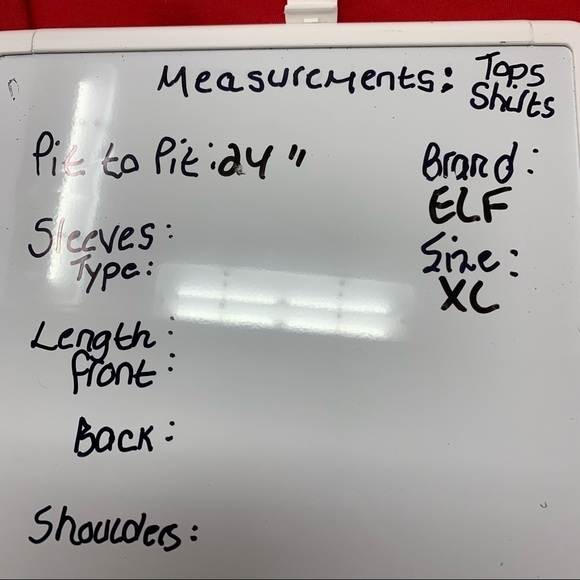 Measurements: Tops
Shirts
Pit to Pit: 24"
Brand:
ELF
Sleeves:
Type:
Size:
XL
Length:
front:
Back:
Shoulders: